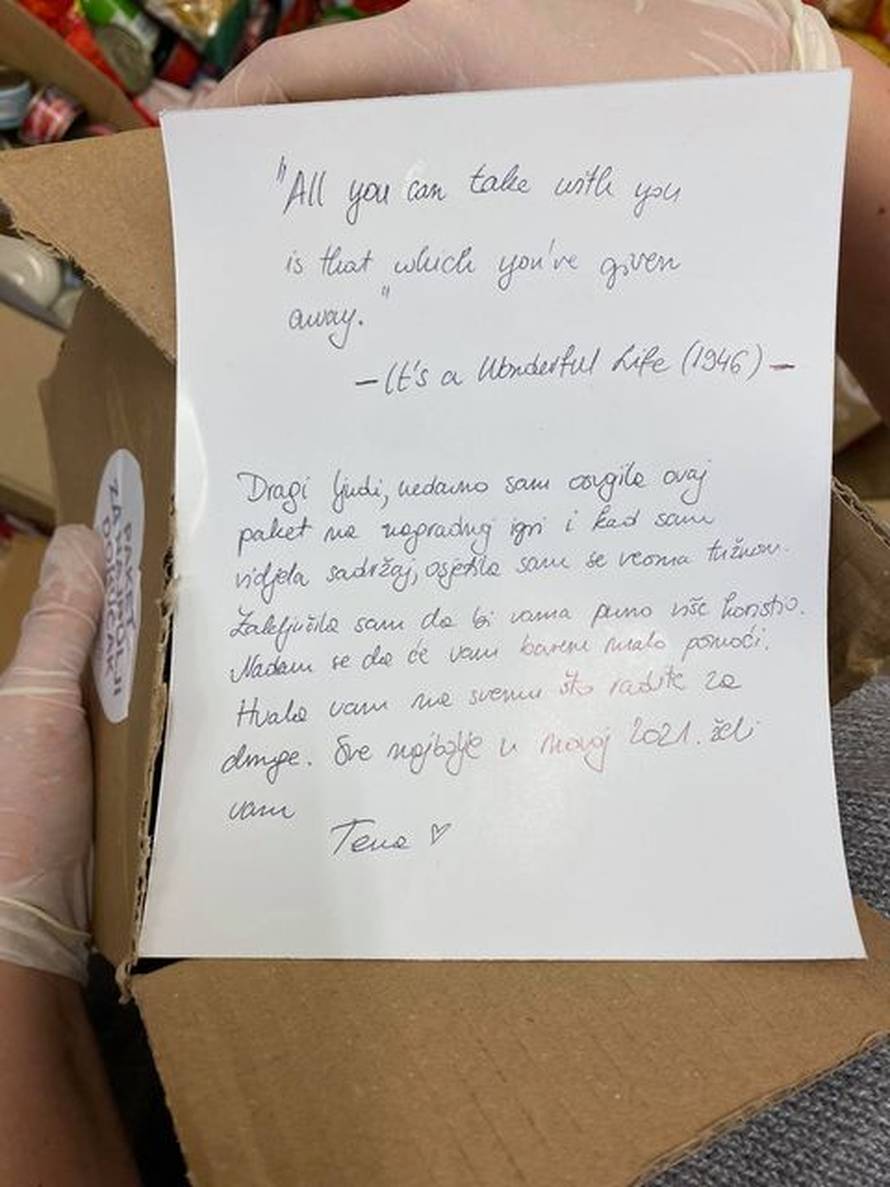 "All you can take with you
is that which you've given
away."
- It's a Wonderful Life (1946) -
Dragi ljudi, nedavno sam osvojila ovaj
paket na nagradnoj igri i kad sam
vidjela sadržaj, osjetila sam se veoma tužnom.
Zaključila sam da bi vama puno više koristio.
Nadam se da će vam barem malo pomoći.
Hvala vam na svemu što radite za
druge. Sve najbolje u novoj 2021. želi
vam
Tena ♡
PAKET
ZA NAJBOLJI
DORUČAK